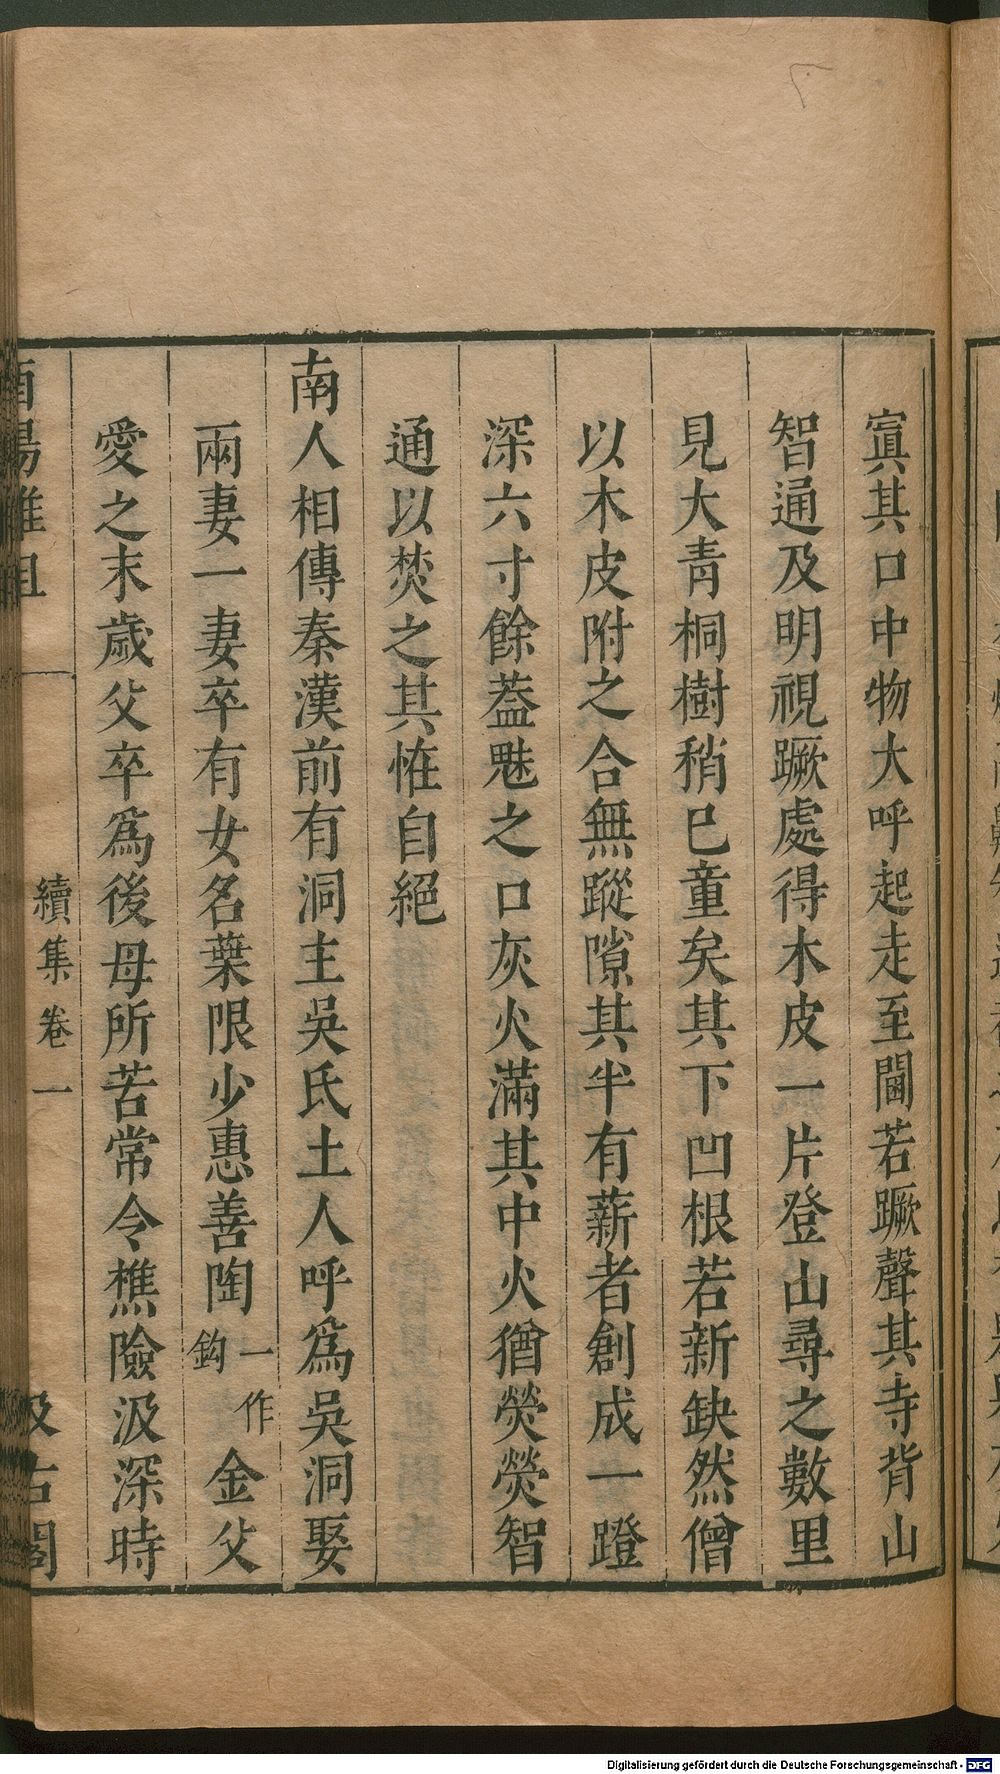 寘其口中物大呼起走至閫若蹶聲其寺背山
智通及明視蹶處得木皮一片登山尋之數里
見大青桐樹稍已童矣其下凹根若新缺然僧
以木皮附之合無蹤隙其半有薪者創成一蹬
深六寸餘葢魅之口灰火滿其中火猶熒熒智
通以焚之其恠自絕
南人相傳秦漢前有洞主吳氏土人呼爲吳洞娶
兩妻一妻卒有女名葉限少惠善陶一作鈎金父
愛之末歲父卒爲後母所苦常令樵險汲深時
續集卷一
Digitalisierung gefördert durch die Deutsche Forschungsgemeinschaft - DFG